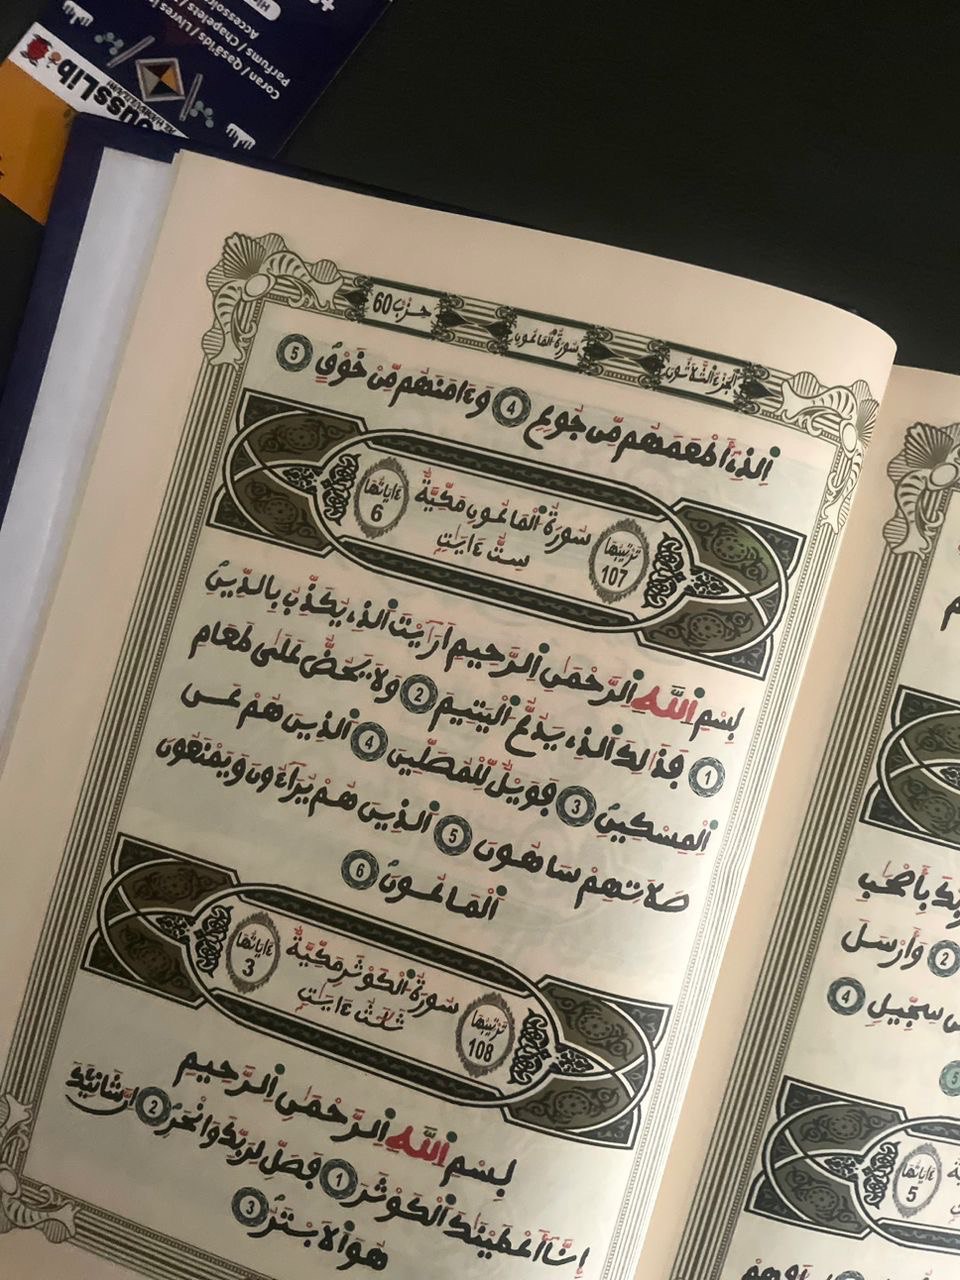 OussLib
Coran / Qasâ'ids / Livres
Parfums / Chapelets /
Accessoires
الجزء الثلاثون
سورة الماعون
حزب 60
الذےأطعمهم من جوع 4 وءامنهم من خوف 5
ترتيبها 107
سورة الماعون مكية
ست ءايت
ءاياتها 6
بسم الله الرحمن الرحيم ارايت الذے يكذب بالدين
1 فذلك الذے يدع اليتيم 2 ولا يحض على طعام
المسكين 3 فويل للمصلين 4 الذين هم عن
صلاتهم ساهون 5 الذين هم يراءون ويمنعون
الماعون 6
ترتيبها 108
سورة الكوثر مكية
ثلث ءايت
ءاياتها 3
بسم الله الرحمن الرحيم
إنا أعطينك الكوثر 1 فصل لربك وانحر 2 إن شانئك
هو ألابتر 3
بأصحب
2 وأرسل
سجيل 4
5
ءاياتها 5